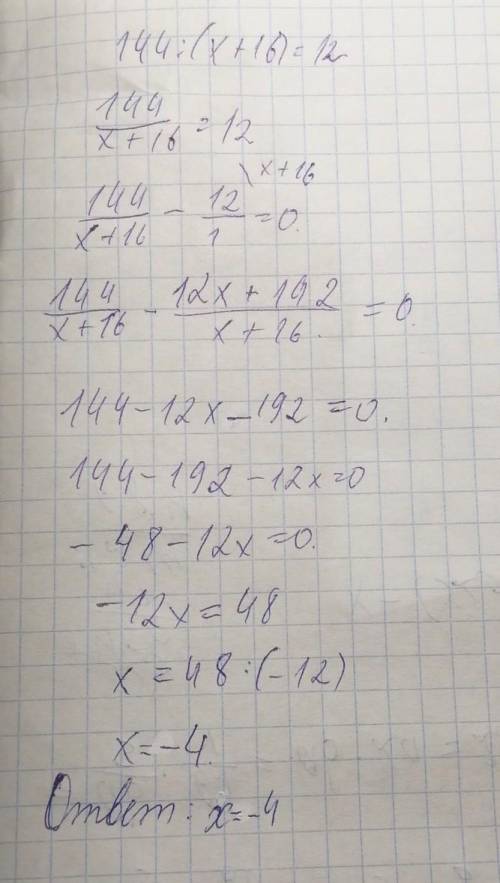 144:(x+16)=12
144/(x+16) = 12
144/(x+16) - 12/1 \x+16 =0.
144/(x+16) - (12x+192)/(x+16.) =0.
144-12x-192=0.
144-192-12x=0
-48-12x=0.
-12x=48
x=48:(-12)
x=-4.
Ответ: x=-4